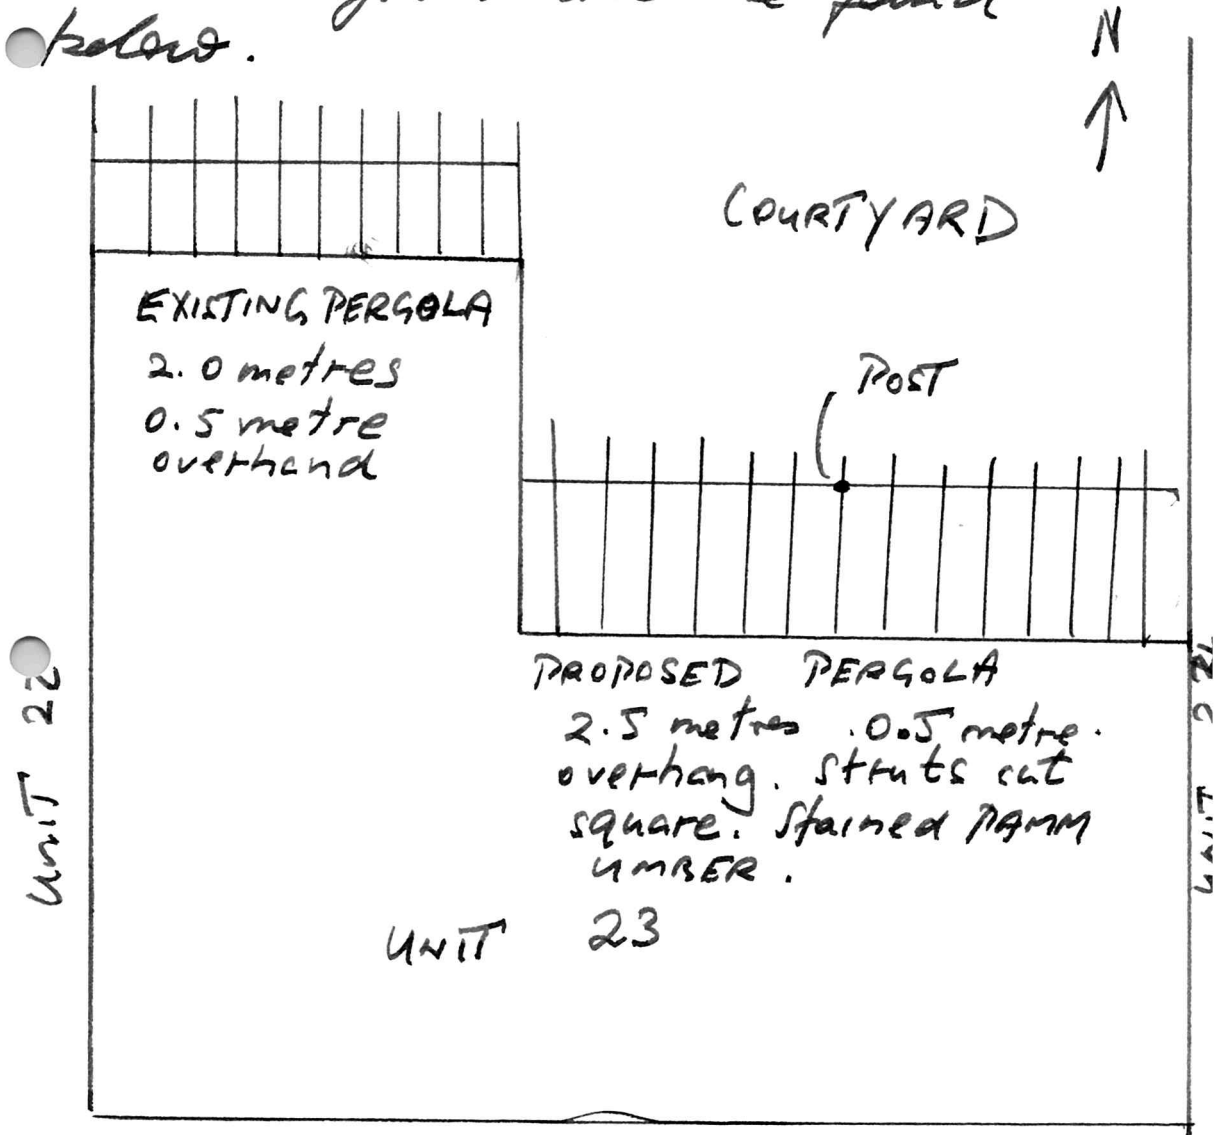 found
below.
N
COURTYARD
EXISTING PERGOLA
2.0 metres
0.5 metre
overhand
POST
PROPOSED PERGOLA
2.5 metres .0.5 metre.
overhang. Struts cut
square. Stained PAMM
UMBER.
UNIT 23
UNIT 22
UNIT